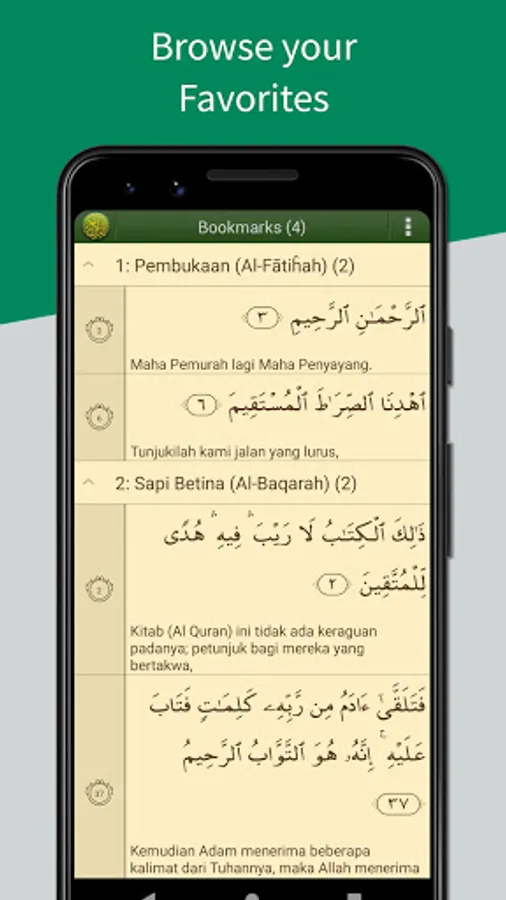 Browse your
Favorites
Bookmarks (4)
1: Pembukaan (Al-Fātiĥah) (2)
3
ٱلرَّحْمَـٰنِ ٱلرَّحِيمِ ٣
Maha Pemurah lagi Maha Penyayang.
6
ٱهْدِنَا ٱلصِّرَٰطَ ٱلْمُسْتَقِيمَ ٦
Tunjukilah kami jalan yang lurus,
2: Sapi Betina (Al-Baqarah) (2)
2
ذَٰلِكَ ٱلْكِتَـٰبُ لَا رَيْبَ ۛ فِيهِ ۛ هُدًى
لِّلْمُتَّقِينَ ٢
Kitab (Al Quran) ini tidak ada keraguan
padanya; petunjuk bagi mereka yang
bertakwa,
37
فَتَلَقَّىٰٓ ءَادَمُ مِن رَّبِّهِۦ كَلِمَـٰتٍ فَتَابَ
عَلَيْهِ ۚ إِنَّهُۥ هُوَ ٱلتَّوَّابُ ٱلرَّحِيمُ
٣٧
Kemudian Adam menerima beberapa
kalimat dari Tuhannya, maka Allah menerima